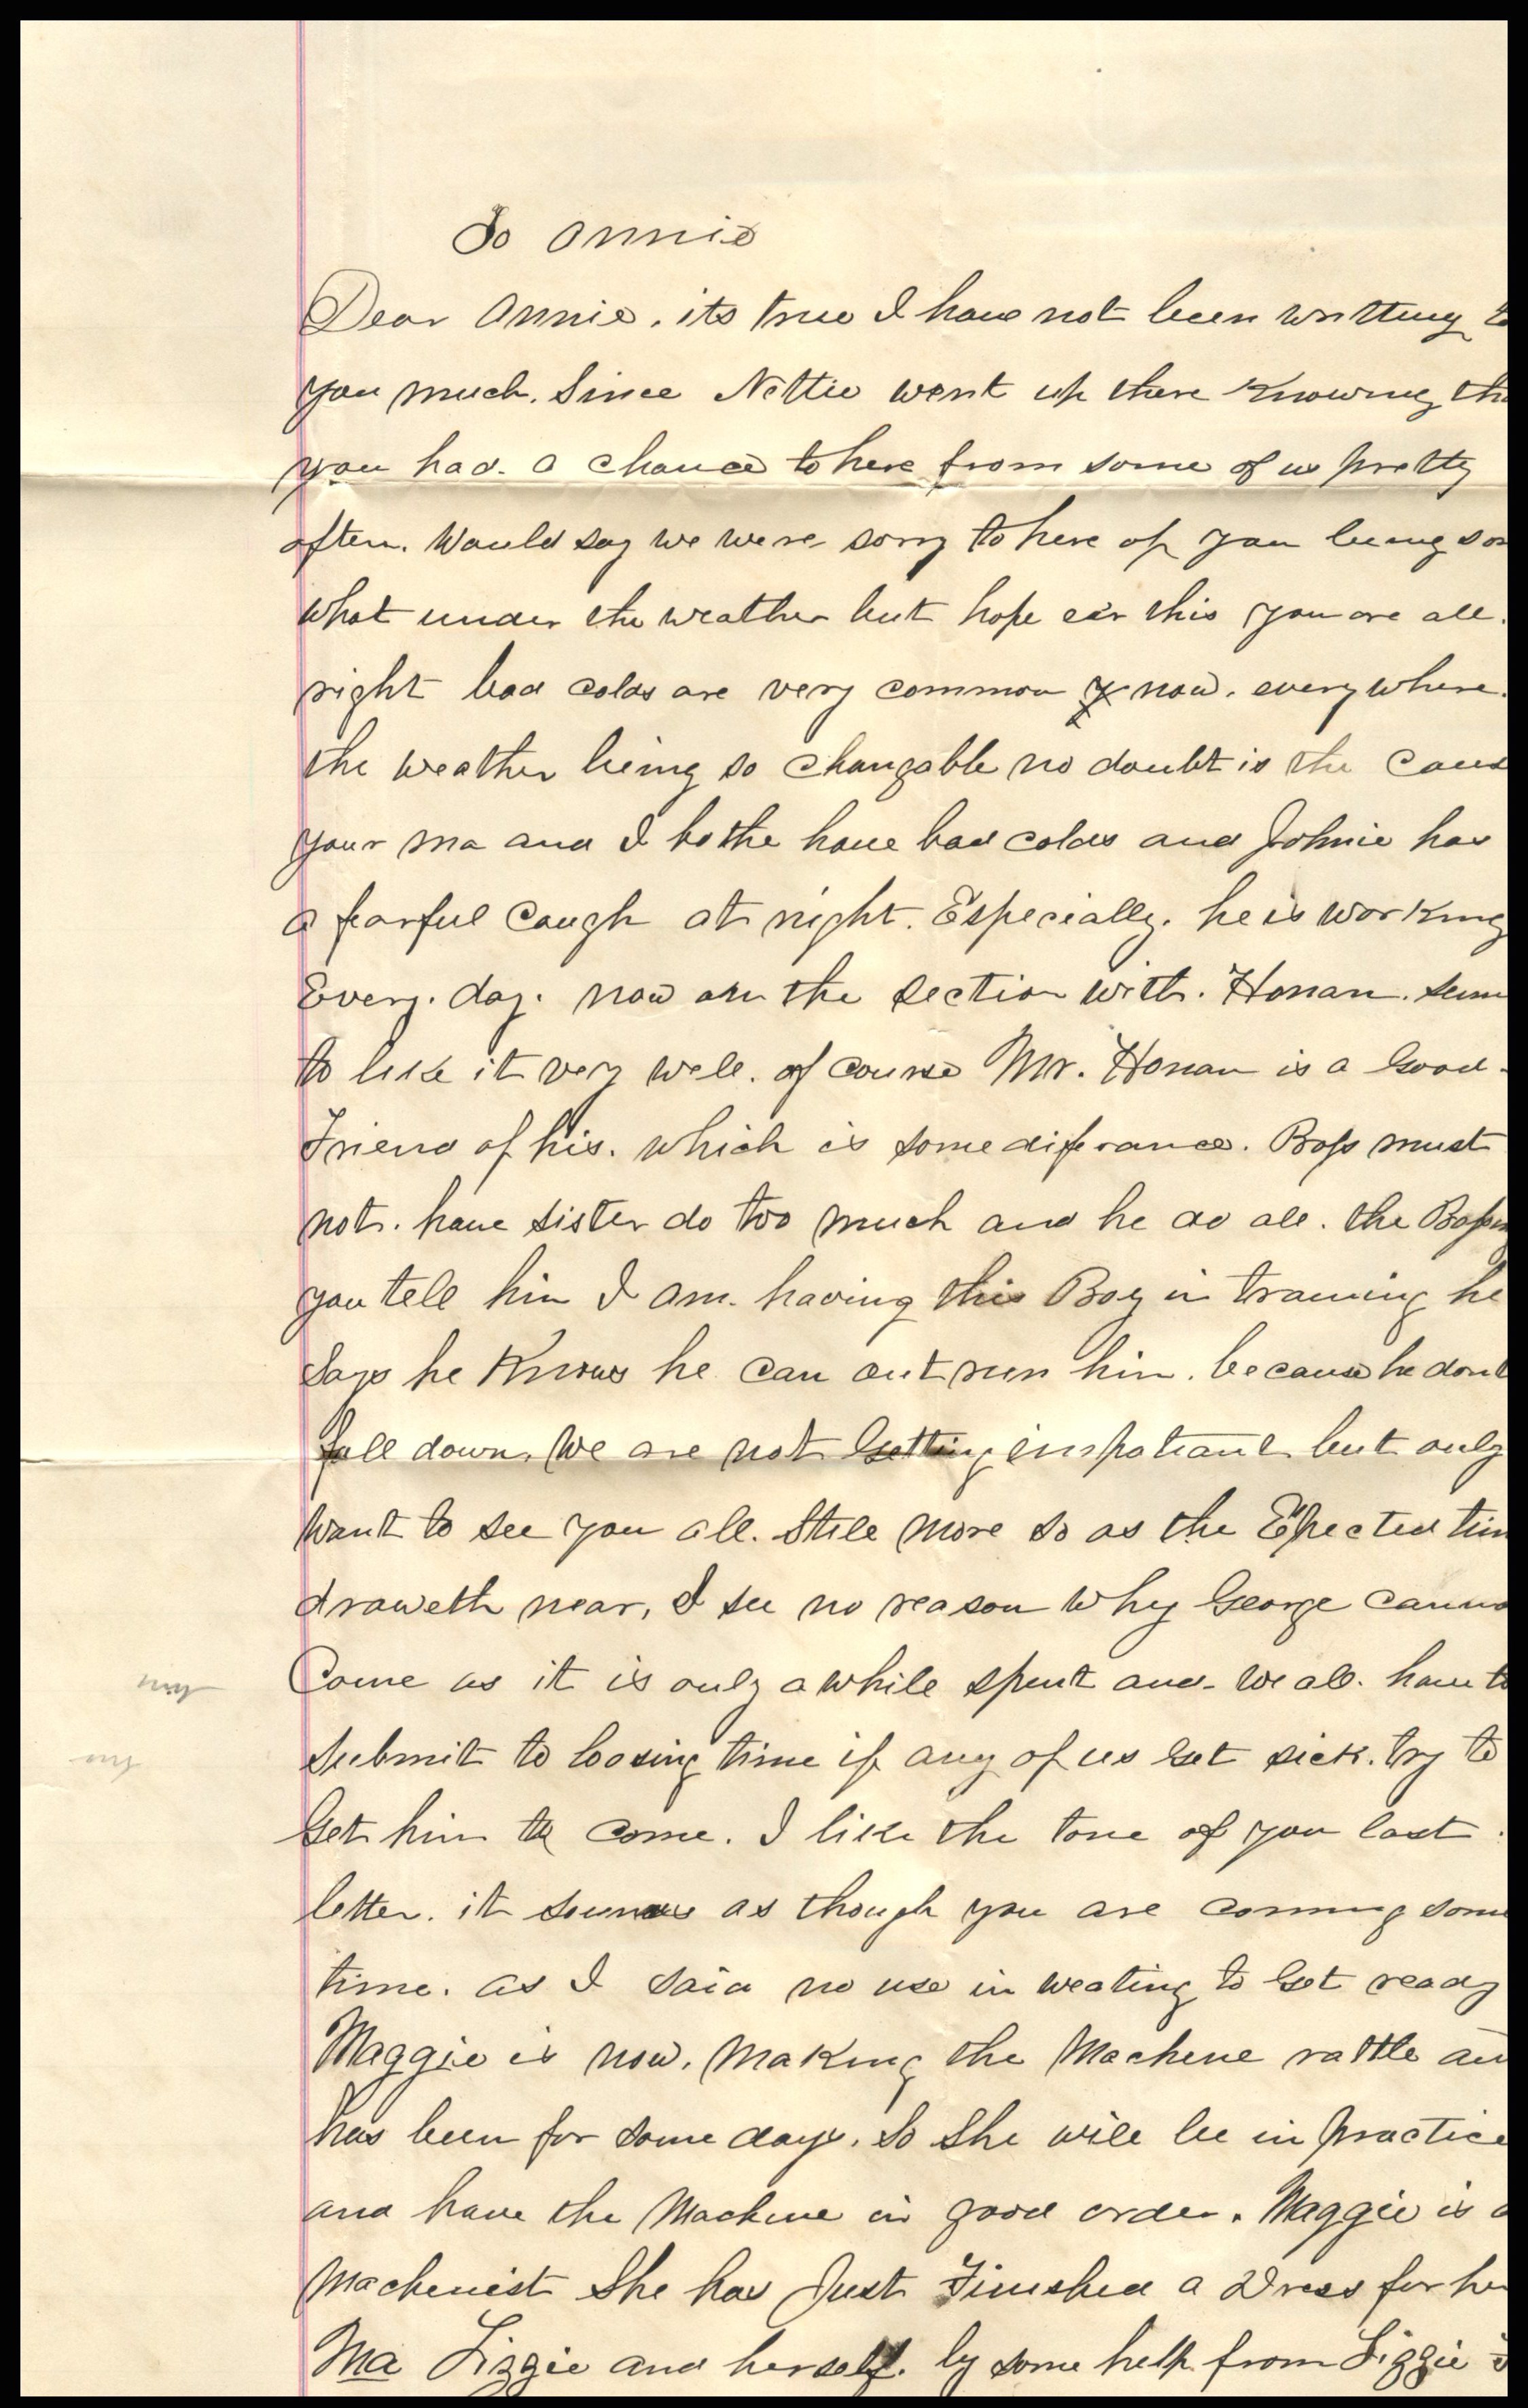 To Annie
Dear Annie. its true I have not been writting to
you much. Since Nettie went up there Knowing tha
you had. a chance to here from some of us pretty
often. Would say we were sorry to here of you being som
what under the weather but hope ear this you are all.
right bad colds are very common now. everywhere.
the weather being so changable no doubt is the Caus
your ma and I bothe have bad colds and Johnie has
a fearful Cough at night. Especially. he is working
Every. day. now on the section with. Honan. seem
to like it very well. of course Mr. Honan is a Good.
Friend of his. which is some diferance. Boss must
not. have sister do too much and he do all. the Bossing
you tell him I am. having this Boy in training he
Says he Knows he can out run him. because he dont
fall down. We are not Getting inspatiant but only
want to see you all. Still more so as the Expected tim
draweth near, I see no reason why George Canno
Come as it is only a while spent and. we all. have to
submit to loosing time if any of us Get sick. try to
Get him to come. I like the tone of you last
letter. it sounds as though you are coming some
time. as I said no use in weating to Get ready
Maggie is now. making the Machine rattle an
has been for some days. So She will be in practice
and have the Machine in good order. Maggie is a
Machenist She has Just Finished a Dress for he
Ma Lizzie and herself. by some help from Lizzie